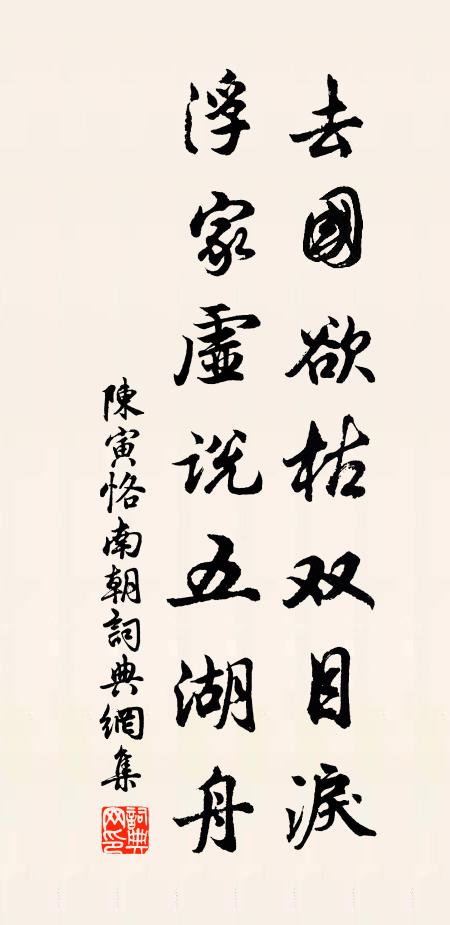 去國欲枯双目淚
浮家虛说五湖舟
陳寅恪南朝詞典網集
詞典網印